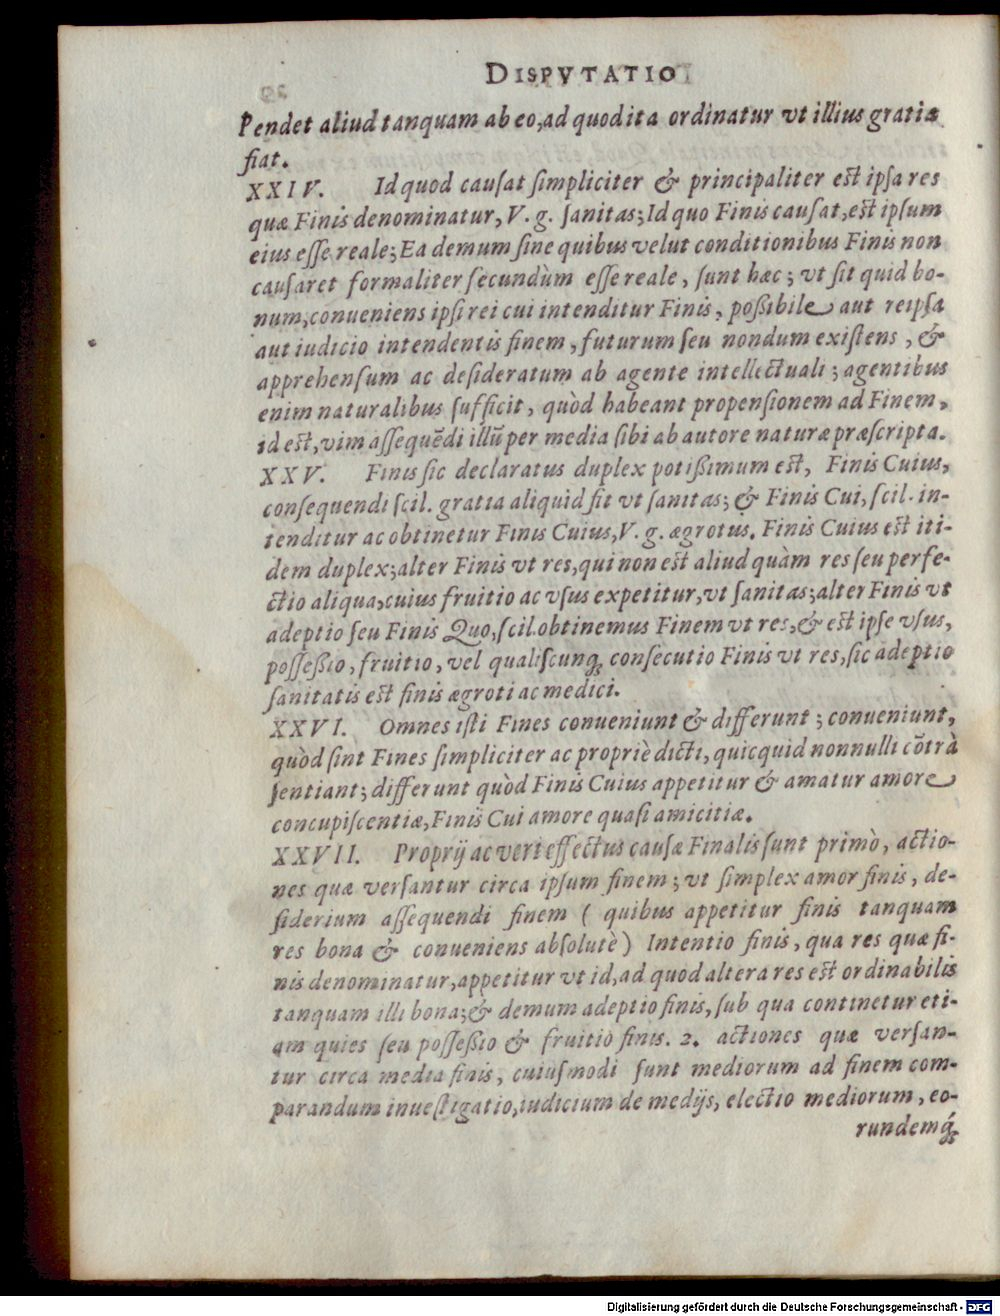 DISPVTATIO
Pendet aliud tanquam ab eo, ad quod ita ordinatur vt illius gratia
fiat.
XXIV. Id quod cauſat ſimpliciter & principaliter est ipſa res
quæ Finis denominatur, V. g. ſanitas; Id quo Finis cauſat, est ipſum
eius eſſe reale; Ea demum ſine quibus velut conditionibus Finis non
cauſaret formaliter ſecundùm eſſe reale, ſunt hæc; vt ſit quid bo-
num, conueniens ipſi rei cui intenditur Finis, poßibile aut reipſa
aut iudicio intendentis finem, futurum ſeu nondum exiſtens, &
apprehenſum ac deſideratum ab agente intellectuali; agentibus
enim naturalibus ſufficit, quòd habeant propenſionem ad Finem,
id est, vim aſſequẽdi illũ per media ſibi ab autore naturæ præſcripta.
XXV. Finis ſic declaratus duplex potißimum est, Finis Cuius,
conſequendi ſcil. gratia aliquid fit vt ſanitas; & Finis Cui, ſcil. in-
tenditur ac obtinetur Finis Cuius, V. g. ægrotus. Finis Cuius est iti-
dem duplex; alter Finis vt res, qui non est aliud quàm res ſeu perfe-
ctio aliqua, cuius fruitio ac vſus expetitur, vt ſanitas; alter Finis vt
adeptio ſeu Finis Quo, ſcil. obtinemus Finem vt res, & est ipſe vſus,
poſſeßio, fruitio, vel qualiſcunq; conſecutio Finis vt res, ſic adeptio
ſanitatis est finis ægroti ac medici.
XXVI. Omnes iſti Fines conueniunt & differunt; conueniunt,
quòd ſint Fines ſimpliciter ac propriè dicti, quicquid nonnulli cõtrà
ſentiant; differunt quòd Finis Cuius appetitur & amatur amore
concupiſcentiæ, Finis Cui amore quaſi amicitiæ.
XXVII. Proprij ac veri effectus cauſæ Finalis ſunt primò, actio-
nes quæ verſantur circa ipſum finem; vt ſimplex amor finis, de-
ſiderium aſſequendi finem ( quibus appetitur finis tanquam
res bona & conueniens abſolutè) Intentio finis, qua res quæ fi-
nis denominatur, appetitur vt id, ad quod altera res est ordinabilis
tanquam illi bona; & demum adeptio finis, ſub qua continetur eti-
am quies ſeu poſſeßio & fruitio finis. 2. actiones quæ verſan-
tur circa media finis, cuiuſmodi ſunt mediorum ad finem com-
parandum inueſtigatio, iudicium de medijs, electio mediorum, eo-
rundemq́;
Digitalisierung gefördert durch die Deutsche Forschungsgemeinschaft - DFG